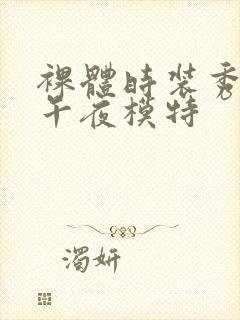 裸體時裝秀
午夜模特
濁妍